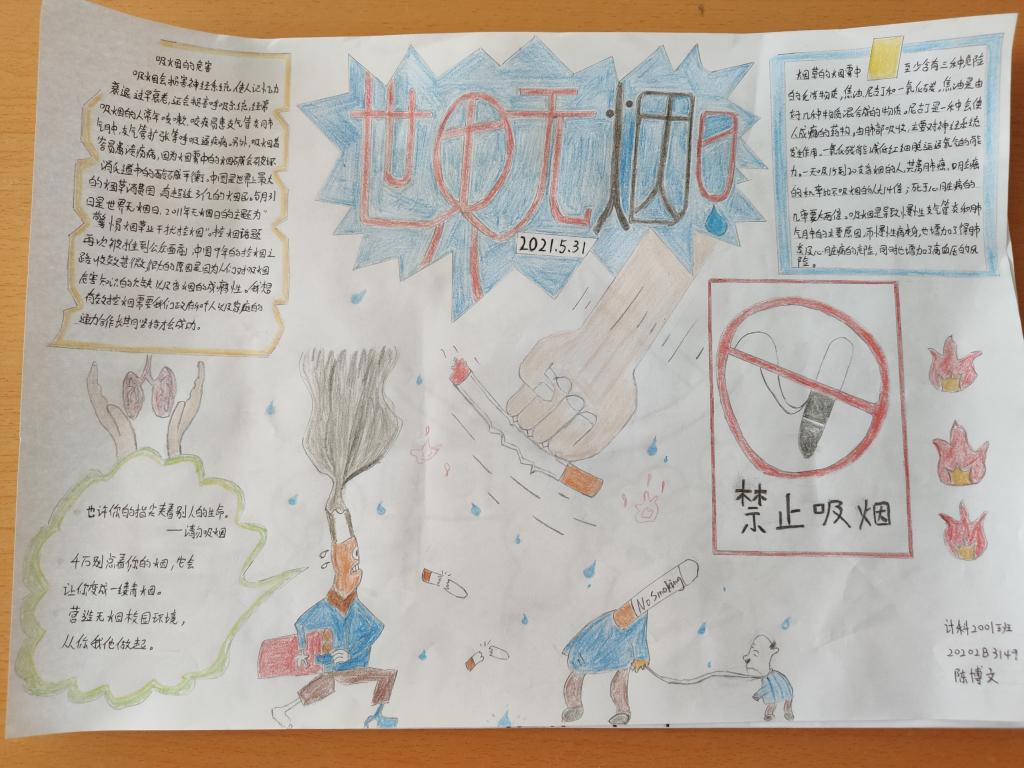 世界无烟日
2021.5.31
吸烟的危害
吸烟会损害神经系统,使人记忆力
衰退,过早衰老,还会损害呼吸系统,经常
吸烟的人常年咳嗽,咳痰易患支气管炎肺
气肿,支气管扩张等呼吸道疾病。另外,吸烟易
容易患溃疡病,因为烟雾中的烟碱会破坏
消化道中的酸碱平衡。中国是世界上最大
的烟草消费国,有超过3亿的烟民。5月31
日是世界无烟日,2011年无烟日的主题为"
警惕烟草业干扰控烟"。控烟话题
再次被推到公众面前,中国9年的控烟之
路收效甚微,很大的原因是因为人们对吸烟
危害知识的欠缺以及香烟的成瘾性。我想
有效控烟需要我们政府个人以及家庭的
通力合作长期坚持才会成功。
烟草的烟雾中 至少含有三种危险
的化学物质,焦油,尼古丁和一氧化碳,焦油是由
好几种物质混合成的物质。尼古丁是一种会使
人成瘾的药物,由肺部吸收,主要对神经系统
发生作用。一氧化碳能减低红细胞运送氧气的能
力。一天吸15到20支香烟的人,其患肺癌,口腔癌
的机率比不吸烟的人大14倍;死于心脏病的
几率要大两倍。吸烟是导致慢性支气管炎和肺
气肿的主要原因,而慢性病本身,也增加了得肺
炎及心脏病的危险,同时也增加了高血压的风
险。
禁止吸烟
也许你的指尖夹着别人的生命。
——请勿吸烟
千万别点着你的烟,它会
让你变成一缕青烟。
营造无烟校园环境,
从你我他做起。
No Smoking
计科2001班
20202B3149
陈博文